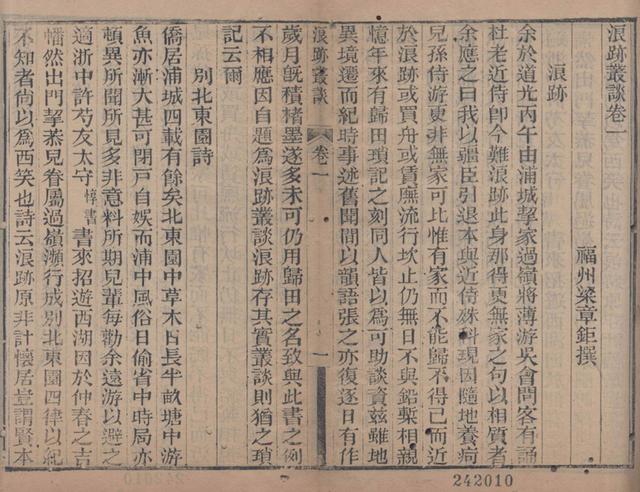 浪跡叢談卷一
福州梁章鉅撰
浪跡
余於道光丙午由浦城挈家過嶺將薄游吳會問客有誦
杜老近侍卽今難浪跡此身那得更無家之句以相質者
余應之曰我以疆臣引退本與近侍殊科現因隨地養疴
兒孫侍游更非無家可比惟有家而不能歸不得已而近
於浪跡或買舟或賃廡流行坎止仍無日不與鉛槧相親
憶年來有歸田瑣記之刻同人皆以爲可助談資兹雖地
異境遷而紀時事述舊聞間以韻語張之亦復逐日有作
浪跡叢談
卷一
一
歲月旣積楮墨遂多未可仍用歸田之名致與此書之例
不相應因自題爲浪跡叢談浪跡存其實叢談則猶之瑣
記云爾
別北東園詩
僑居浦城四載有餘矣北東園中草木日長半畝塘中游
魚亦漸大甚可閉戶自娛而浦中風俗日偷省中時局亦
頓異所聞所見多非意料所期兒輩每勸余遠游以避之
適浙中許芍友太守惇書書來招遊西湖因於仲春之吉
幡然出門挈恭兒眷屬過嶺瀕行成別北東園四律以紀
不知者尙以爲西笑也詩云浪跡原非計懷居豈謂賢本
242010